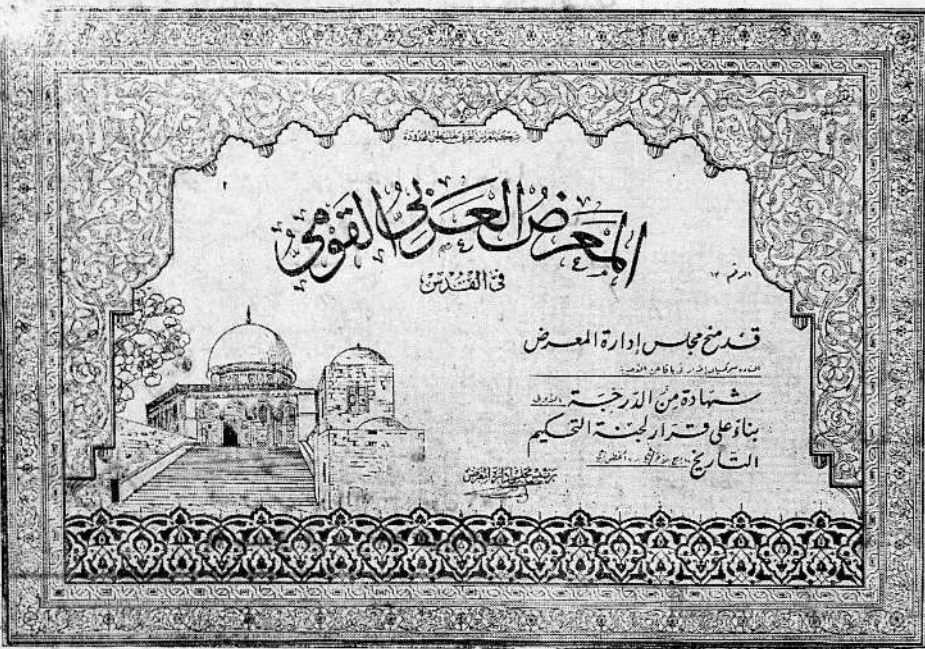 المعرض العربي القومي
في القدس
الرقم ١٢
قد منح مجلس إدارة المعرض
شهادة من الدرجة الأولى
بناءً على قرار لجنة التحكيم
التاريخ
رئيس مجلس إدارة المعرض